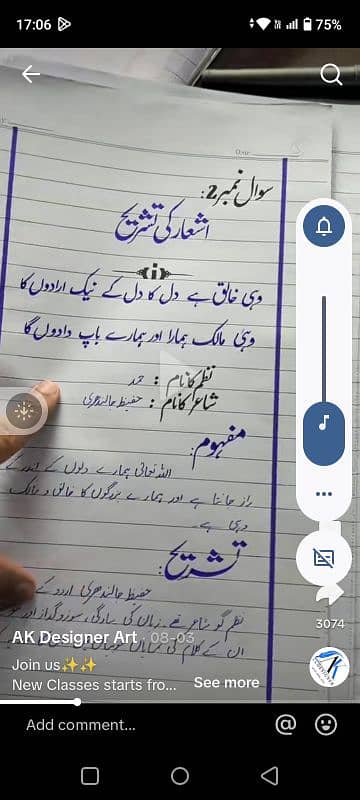 17:06
75%
سوال نمبر 2:
اشعار کی تشریح
(i)
وہی خالق ہے دل کا دل کے نیک ارادوں کا
وہی مالک ہمارا اور ہمارے باپ دادوں کا
نظم کا نام : حمد
شاعر کا نام : حفیظ جالندھری
مفہوم:
اللہ تعالیٰ ہمارے دلوں کے اندر کے
راز جانتا ہے اور ہمارے بزرگوں کا خالق و مالک
وہی ہے۔
تشریح:
حفیظ جالندھری اردو کے
نظم گو شاعر تھے۔ زبان کی سادگی، سوز و گداز اور
ان کے کلام کی
3074
AK Designer Art · 08-03
Join us✨✨
New Classes starts fro... See more
Add comment...